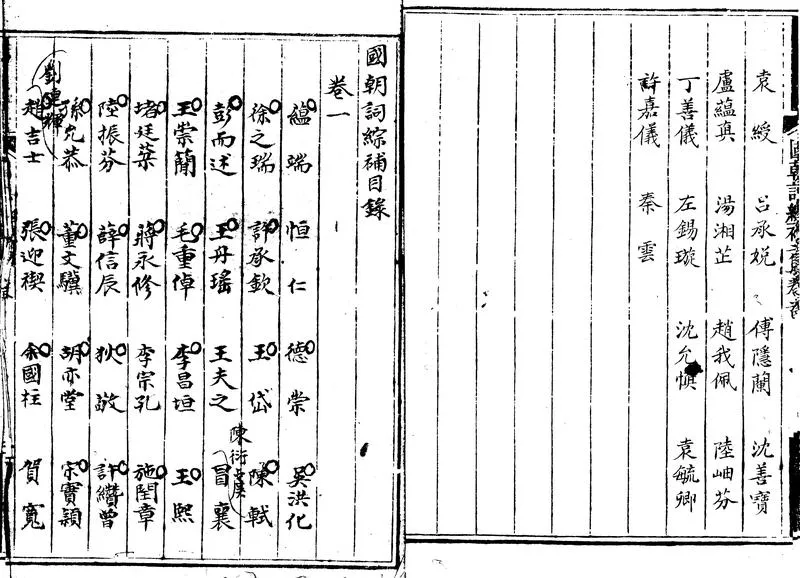 袁綬 呂承娧 傅隱蘭 沈善寶
盧蘊真 湯湘芷 趙我佩 陸岫芬
丁善儀 左錫璇 沈允慎 袁毓卿
許嘉儀 秦雲
國朝詞綜補目錄
卷一
韞端 恒仁 德崇 吳洪化
徐之瑞 許承欽 王岱 陳軾
彭而述 王丹瑤 王夫之 冒襄
陳衍虞
王崇蘭 毛重倬 李昌垣 王熙
堵廷棻 蔣永修 李宗孔 施閏章
陸振芬 薛信辰 狄敬 許纘曾
孫允恭 董文驥 胡亦堂 宗實穎
劉
趙吉士 張迎禊 余國柱 賀寬